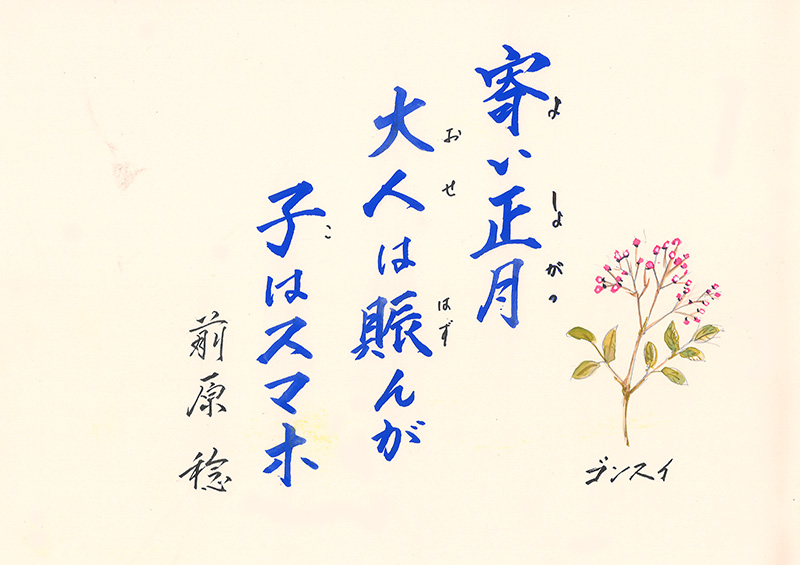 寄い正月
よ しよがつ
大人は賑んが
おせ はず
子はスマホ
こ
前原 稔
ゴンズイ